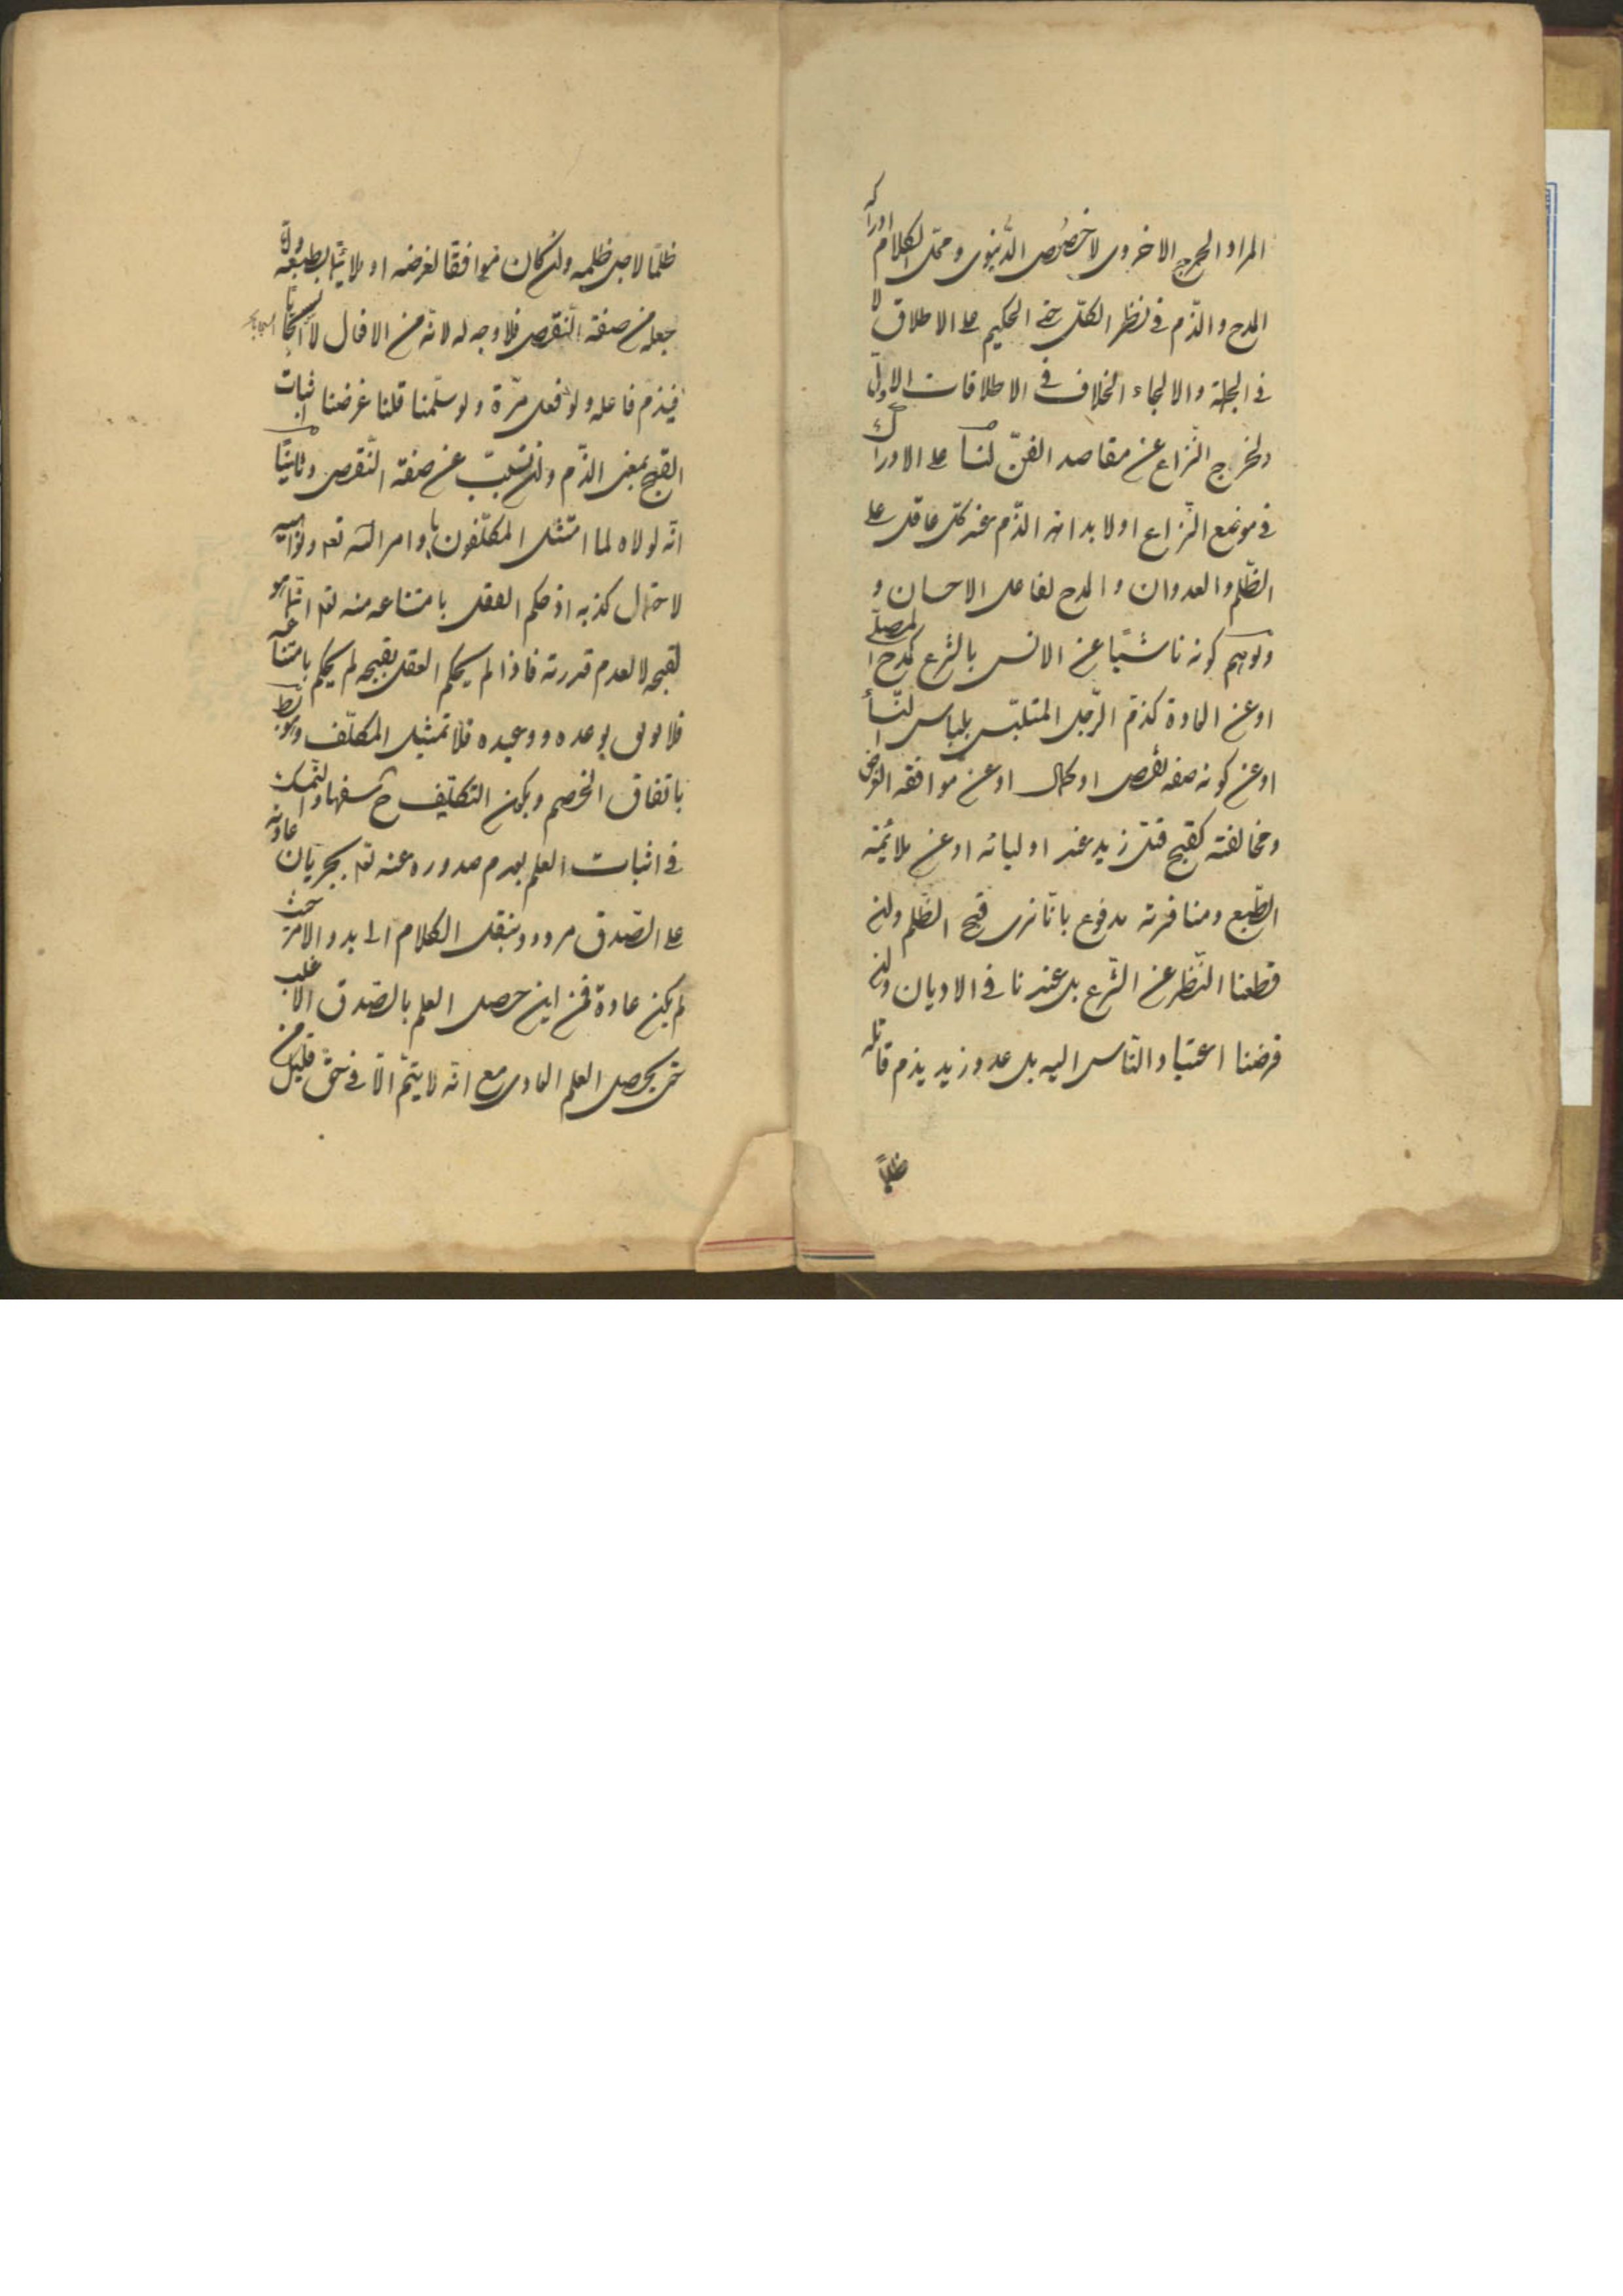 المراد الحرج الاخروى لا خصوص الدّنيوى ومحلّ الكلام ادراكه
المدح والذّم فى نظر الكلّ حتى الحكيم على الاطلاق لا
فى الجملة والالجاء الخلاف فى الاطلاقات الاول
ولخرج النّزاع عن مقاصد الفنّ لنا على الادراك
فى موضع النّزاع اولا بداهة الذّم عند كلّ عاقل على
الظّلم والعدوان والمدح لفاعل الاحسان و
توهم كونه ناشئًا عن الانس بالشرع كمدح المصلّى
او عن العادة كذمّ الرّجل المتلبّس بلباس النّساء
او عن كونه صفة نقص او كمال او عن موافقة الغرض
ومخالفته كقبح قتل زيد عند اوليائه او عن ملائمة
الطّبع ومنافرته مدفوع بانّا نرى قبح الظّلم وان
قطعنا النّظر عن الشّرع بل عندنا فى الاديان وان
فرضنا اعتياد النّاس اليه بل عدو زيد يذم قاتله
ظلمًا
ظلمًا لاجل ظلمه وان كان موافقا لغرضه او ملائما لطبعه وامّا
جعله من صفة النّقص فلا وجه له لانّه من الافعال لا السّجايا
فيذم فاعله ولو فعل مرّة ولو سلّمنا قلنا غرضنا اثبات
القبح بمعنى الذّم وان تسبّب عن صفة النّقص وثانيًا
انّه لولاه لما امتثل المكلّفون باوامر اللّه تعه ونواهيه
لاحتمال كذبه اذ حكم العقل بامتناعه منه تعه انّما هو
لقبحه لا لعدم قدرته فاذا لم يحكم العقل بقبحه لم يحكم بامتناعه
فلا يوثق بوعده ووعيده فلا تمثيل المكلّف وهو بط
باتفاق الخصم ويكون التكليف ح سفها والتمسّك
فى اثبات العلم بعدم صدوره عنه تعه بجريان عادته
على الصّدق مردود وننقل الكلام الى بدو الامر حيث
لم يكن عادة فمن اين حصل العلم بالصّدق الاغلب
حتى يحصل العلم العادى مع انّه لا يتمّ الّا فى حقّ قليل من